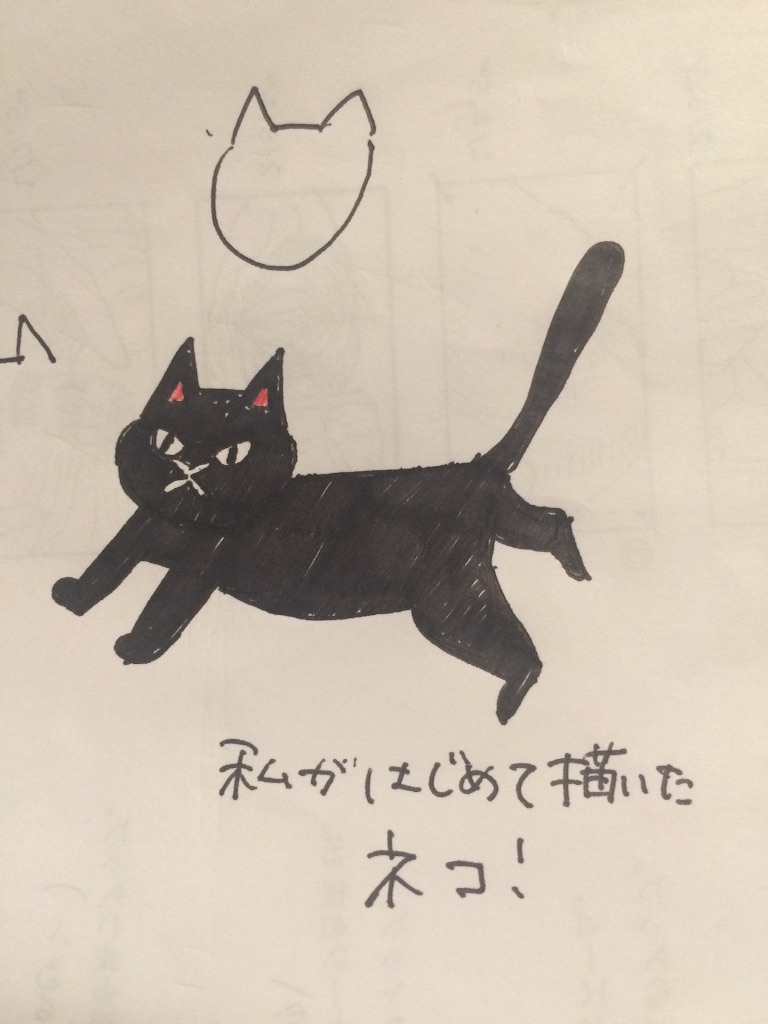 私がはじめて描いた
ネコ!